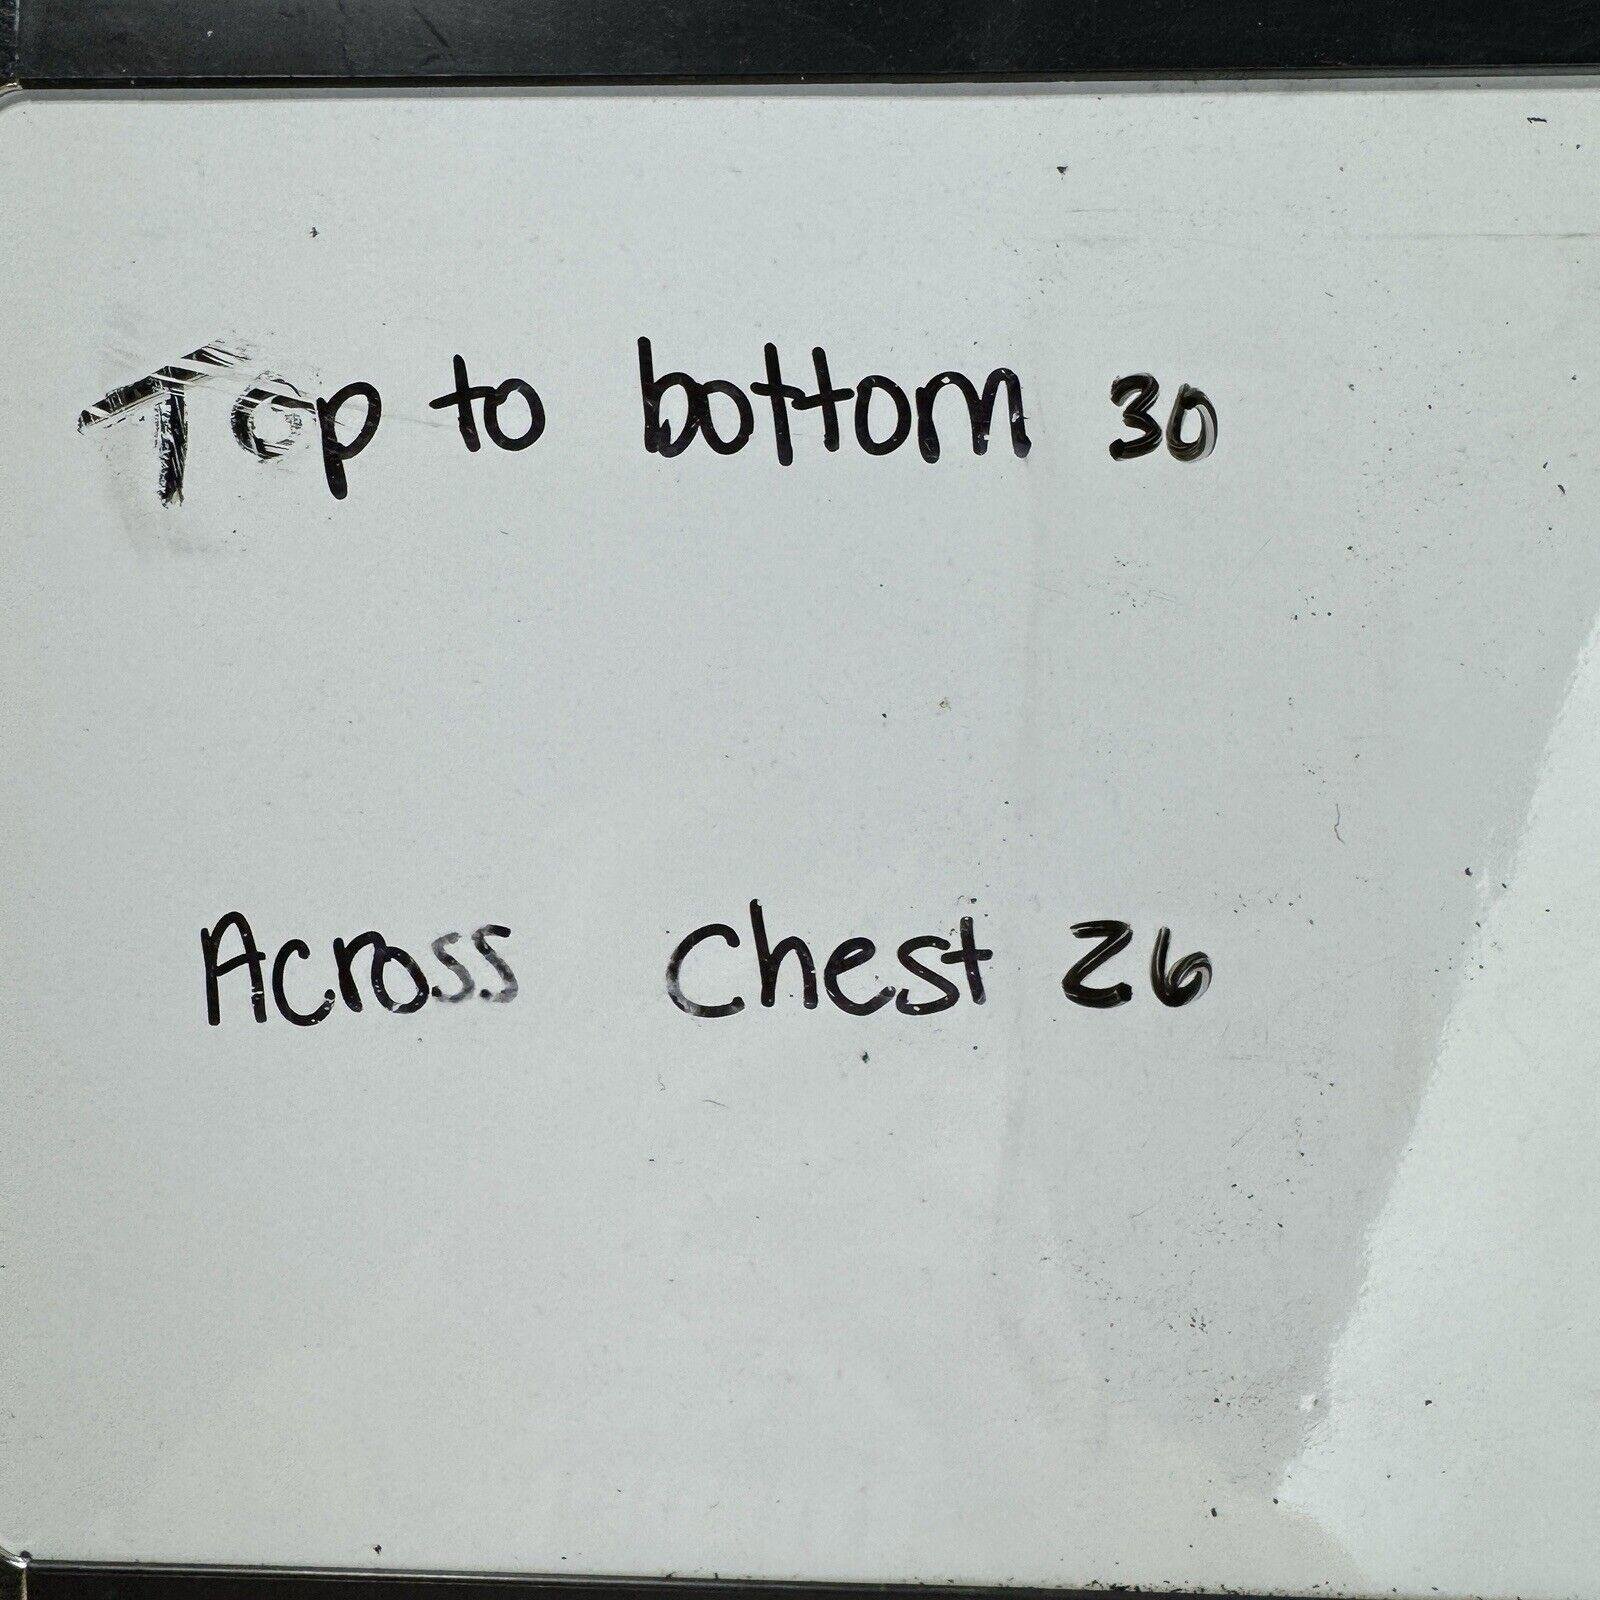 Top to bottom 30
Across Chest 26